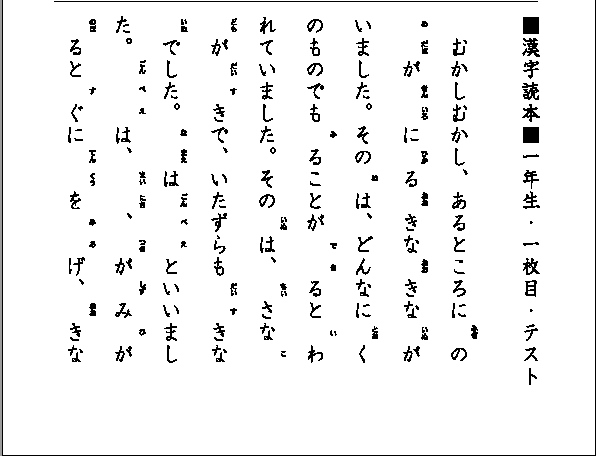 ■漢字読本■一年生・一枚目・テスト
むかしむかし、あるところに　の
が　に　る　きな　きなが
いました。その　は、どんなに　く
のものでも　ることが　ると　わ
れていました。その　は、　さな
が　きで、いたずらも　きな
でした。　は　といいまし
た。　は、　、　が　みが
ると　ぐに　を　げ、　きな